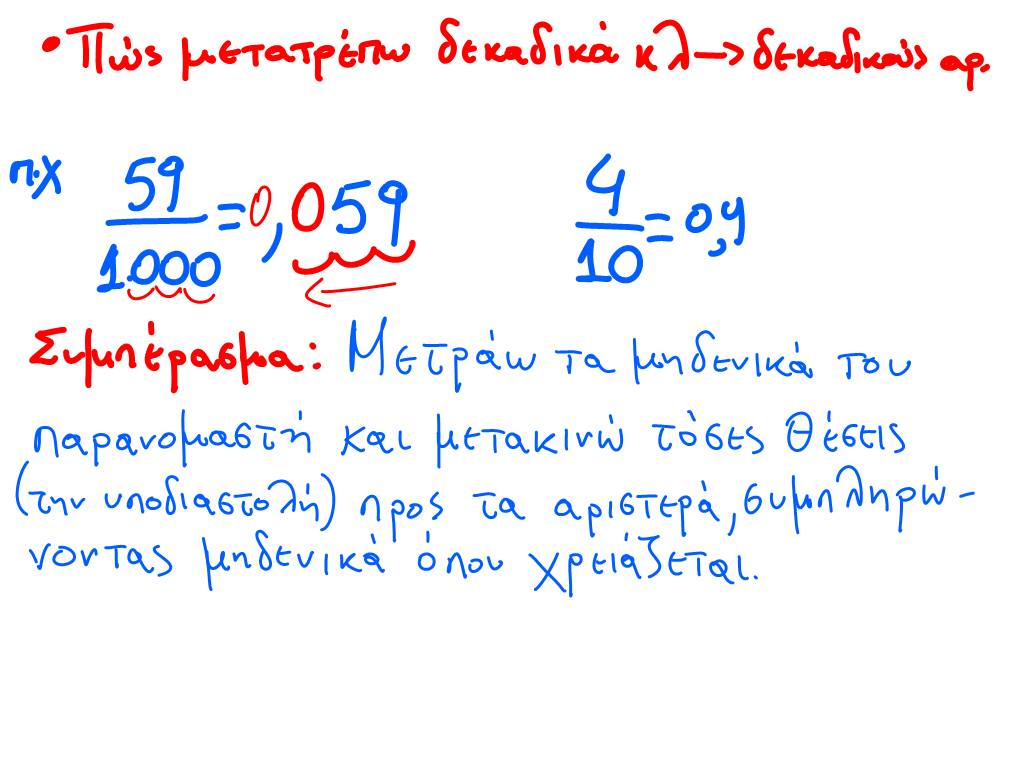 • Πώς μετατρέπω δεκαδικά κλ → δεκαδικούς αρ.
π.χ 59/1.000 = 0,059 4/10 = 0,4
Συμπέρασμα: Μετράω τα μηδενικά του
παρανομαστή και μετακινώ τόσες θέσεις
(την υποδιαστολή) προς τα αριστερά, συμπληρώ-
νοντας μηδενικά όπου χρειάζεται.